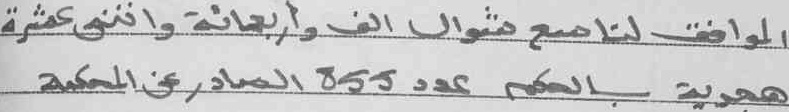 الموافق لتاسع شوال الف وأربعمائة واثنتي عشرة
هجرية بالحكم عدد 855 الصادر عن المحكمة